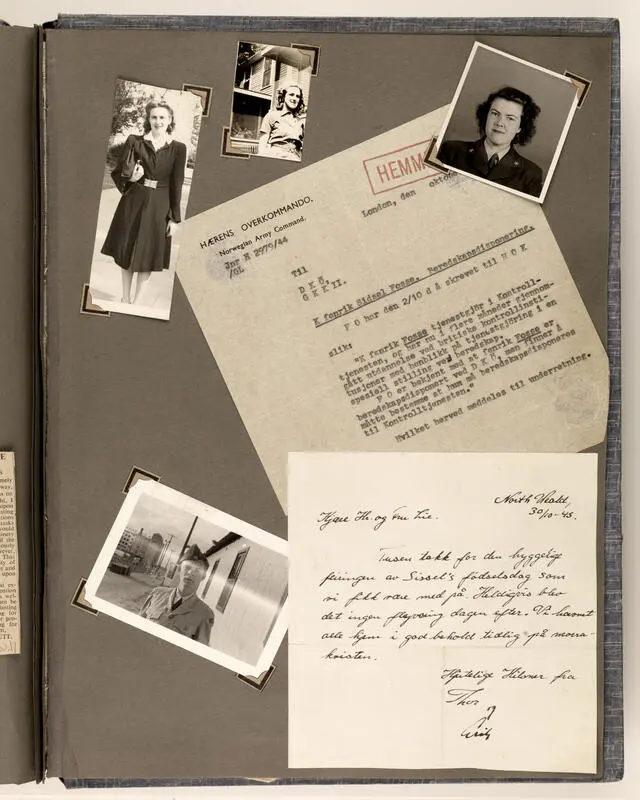 HEMM
HÆRENS OVERKOMMANDO.
Norwegian Army Command.
London, den oktobe
Jnr H 2979/44
/GL
Til
D K Ö.
G K K II.
K fenrik Sidsel Fosse. Beredskapsdisponering.
F O har den 2/10 d å skrevet til H O K
slik:
"K fenrik Fosse tjenestgjör i Kontroll-
tjenesten, og har nu i flere måneder gjennom-
gått utdannelse ved britiske kontrollinsti-
tusjoner med henblikk på tjenestgjöring i en
spesiell stilling ved beredskap.
F O er bekjent med at fenrik Fosse er
beredskapsdisponert ved D K Ö, man finner å
måtte bestemme at hun må beredskapsdisponeres
til Kontrolltjenesten."
Hvilket herved meddeles til underretning.
North Weald,
30/10-45.
Kjære Hr. og Fru Lie.
Tusen takk for den hyggelige
feiringen av Sissel's födselsdag som
vi fikk være med på. Heldigvis blev
det ingen flyvning dagen efter. Vi
alle hjem i god behold tidlig på morra-
kvisten.
Hjertelige Hilsner fra
Thor